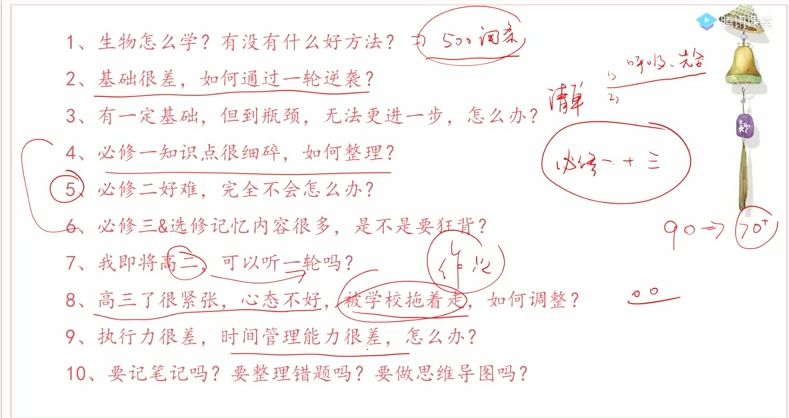 腾讯课堂
1、生物怎么学？有没有什么好方法？ 500词条
2、基础很差，如何通过一轮逆袭？
1) 呼吸、光合
清单 2)
3、有一定基础，但到瓶颈，无法更进一步，怎么办？
4、必修一知识点很细碎，如何整理？
必修一+三
5、必修二好难，完全不会怎么办？
6、必修三&选修记忆内容很多，是不是要狂背？
90→70+
7、我即将高二，可以听一轮吗？ 作业
8、高三了很紧张，心态不好，被学校拖着走，如何调整？
9、执行力很差，时间管理能力很差，怎么办？
10、要记笔记吗？要整理错题吗？要做思维导图吗？